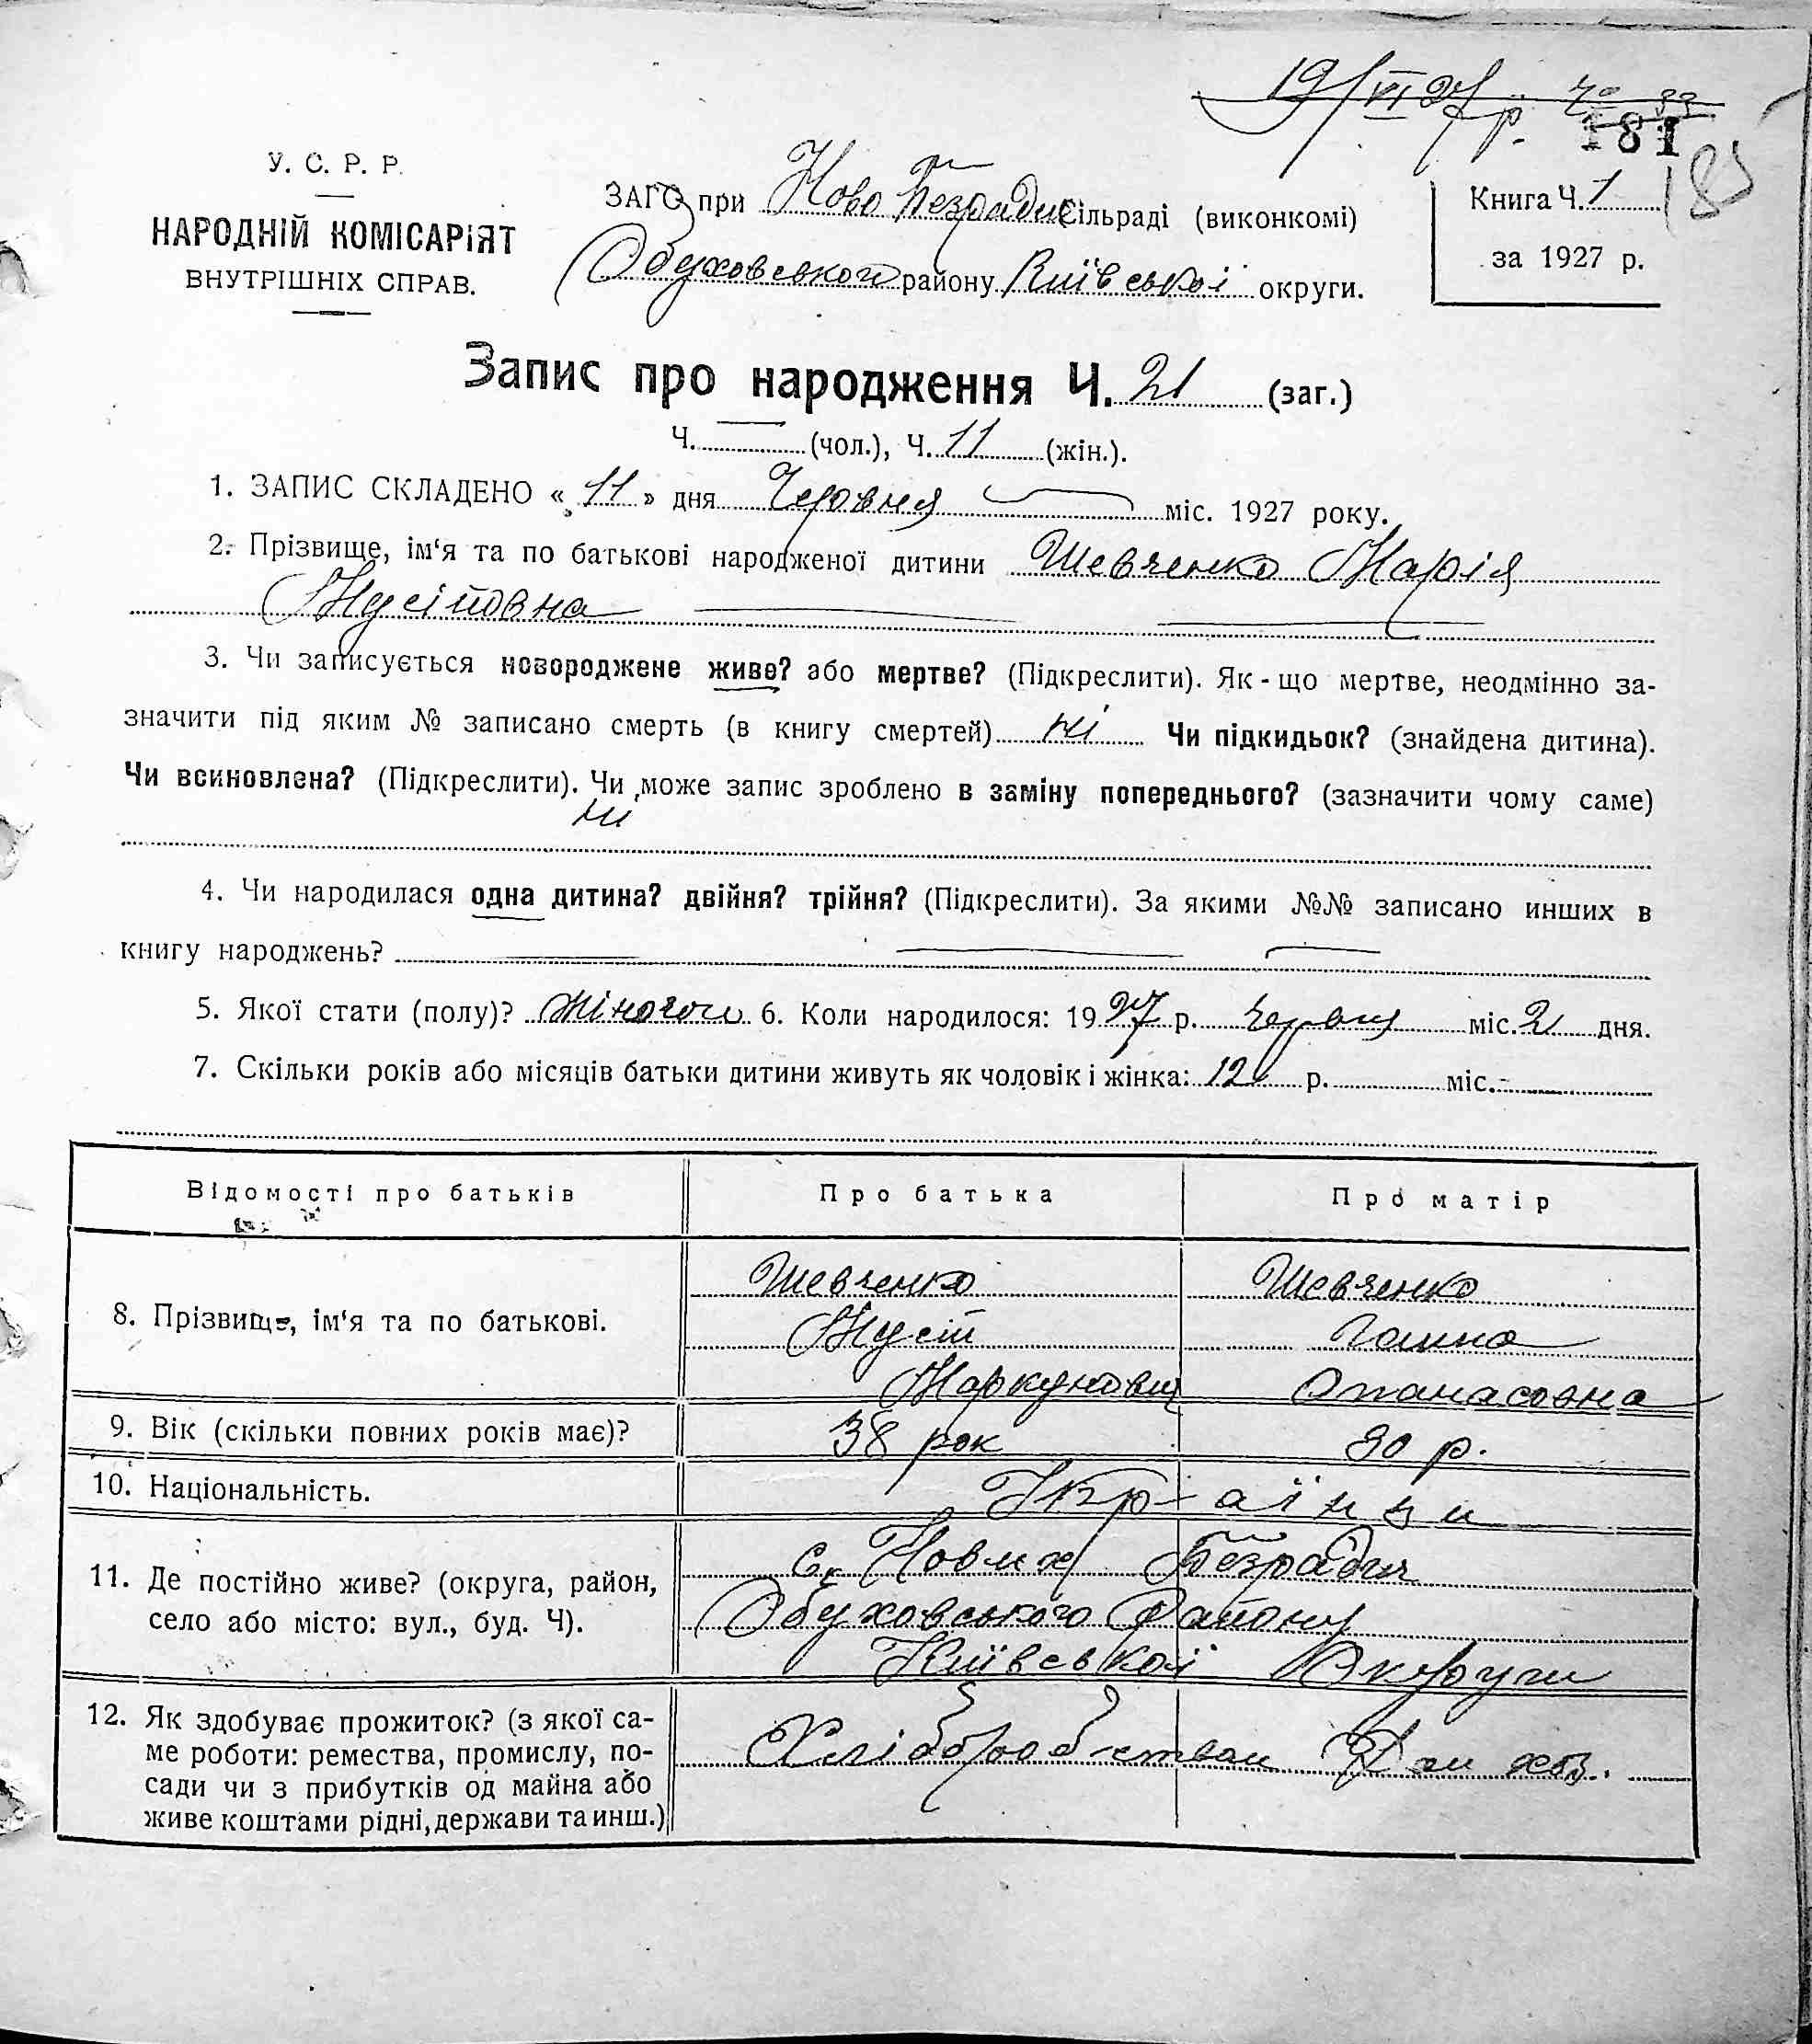 19/VI 27 р.
181
У. С. Р. Р.
НАРОДНІЙ КОМІСАРІЯТ
ВНУТРІШНІХ СПРАВ.
ЗАГС при Ново Безрадис Сільраді (виконкомі)
Обуховського району Київської округи.
Книга Ч. 1
за 1927 р.
Запис про народження Ч. 21 (заг.)
Ч. — (чол.), Ч. 11 (жін.).
1. ЗАПИС СКЛАДЕНО « 11 » дня Червня міс. 1927 року.
2. Прізвище, ім'я та по батькові народженої дитини Шевченко Марія
Мусіповна
3. Чи записується новороджене живе? або мертве? (Підкреслити). Як-що мертве, неодмінно за-
значити під яким № записано смерть (в книгу смертей) ні Чи підкидьок? (знайдена дитина).
Чи всиновлена? (Підкреслити). Чи може запис зроблено в заміну попереднього? (зазначити чому саме)
ні
4. Чи народилася одна дитина? двійня? трійня? (Підкреслити). За якими №№ записано инших в
книгу народжень?
5. Якої стати (полу)? жіночої 6. Коли народилося: 1927 р. червня міс. 2 дня.
7. Скільки років або місяців батьки дитини живуть як чоловік і жінка: 12 р. міс. -
Відомості про батьків Про батька Про матір
8. Прізвище, ім'я та по батькові.
Шевченко Шевченко
Мусій Ганна
Маркунович Опанасовна
9. Вік (скільки повних років має)? 38 рок 30 р.
10. Національність. Укр-аїнци
11. Де постійно живе? (округа, район,
село або місто: вул., буд. Ч).
с. Нових Безрадич
Обуховського Району
Київської Округи
12. Як здобуває прожиток? (з якої са-
ме роботи: ремества, промислу, по-
сади чи з прибутків од майна або
живе коштами рідні, держави та инш.)
Хліборобством Дом хоз.